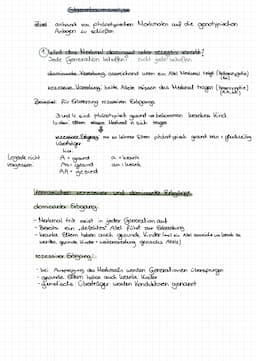 Stammbaumanalyse
Ziel: anhand von phänotypischen Merkmalen auf die genotypischen
Anlagen zu schließen
① Wird das Merkmal dominant oder rezessiv vererbt?
Jede Generation betroffen? nicht jede betroffen
dominante Vererbung: ausreichend wenn ein Allel Merkmal trägt
rezessive Vererbung: beide Allele müssen das Merkmal tragen
Beispiel für Erkennung rezessiver Erbgang:
3 und 4 sind phänotypisch gesund und bekommen krankes Kind
rezessiver Erbgang: nur so können Eltern phänotypisch gesund sein
Überträger
Legende nicht vergessen
A = gesund a = krank
Aa = gesund aa = krank
AA = gesund
Kennzeichen rezessiver und dominanter Erbgänge
dominanter Erbgang:
- Merkmal tritt meist in jeder Generation auf
- Bereits ein "defektes" Allel führt zur Erkrankung
- kranke Eltern haben auch gesunde Kinder
rezessiver Erbgang:
- bei Ausprägung des Merkmals werden Generationen übersprungen
- gesunde Eltern haben auch kranke Kinder
- phänotypische Überträger werden Konduktoren genannt